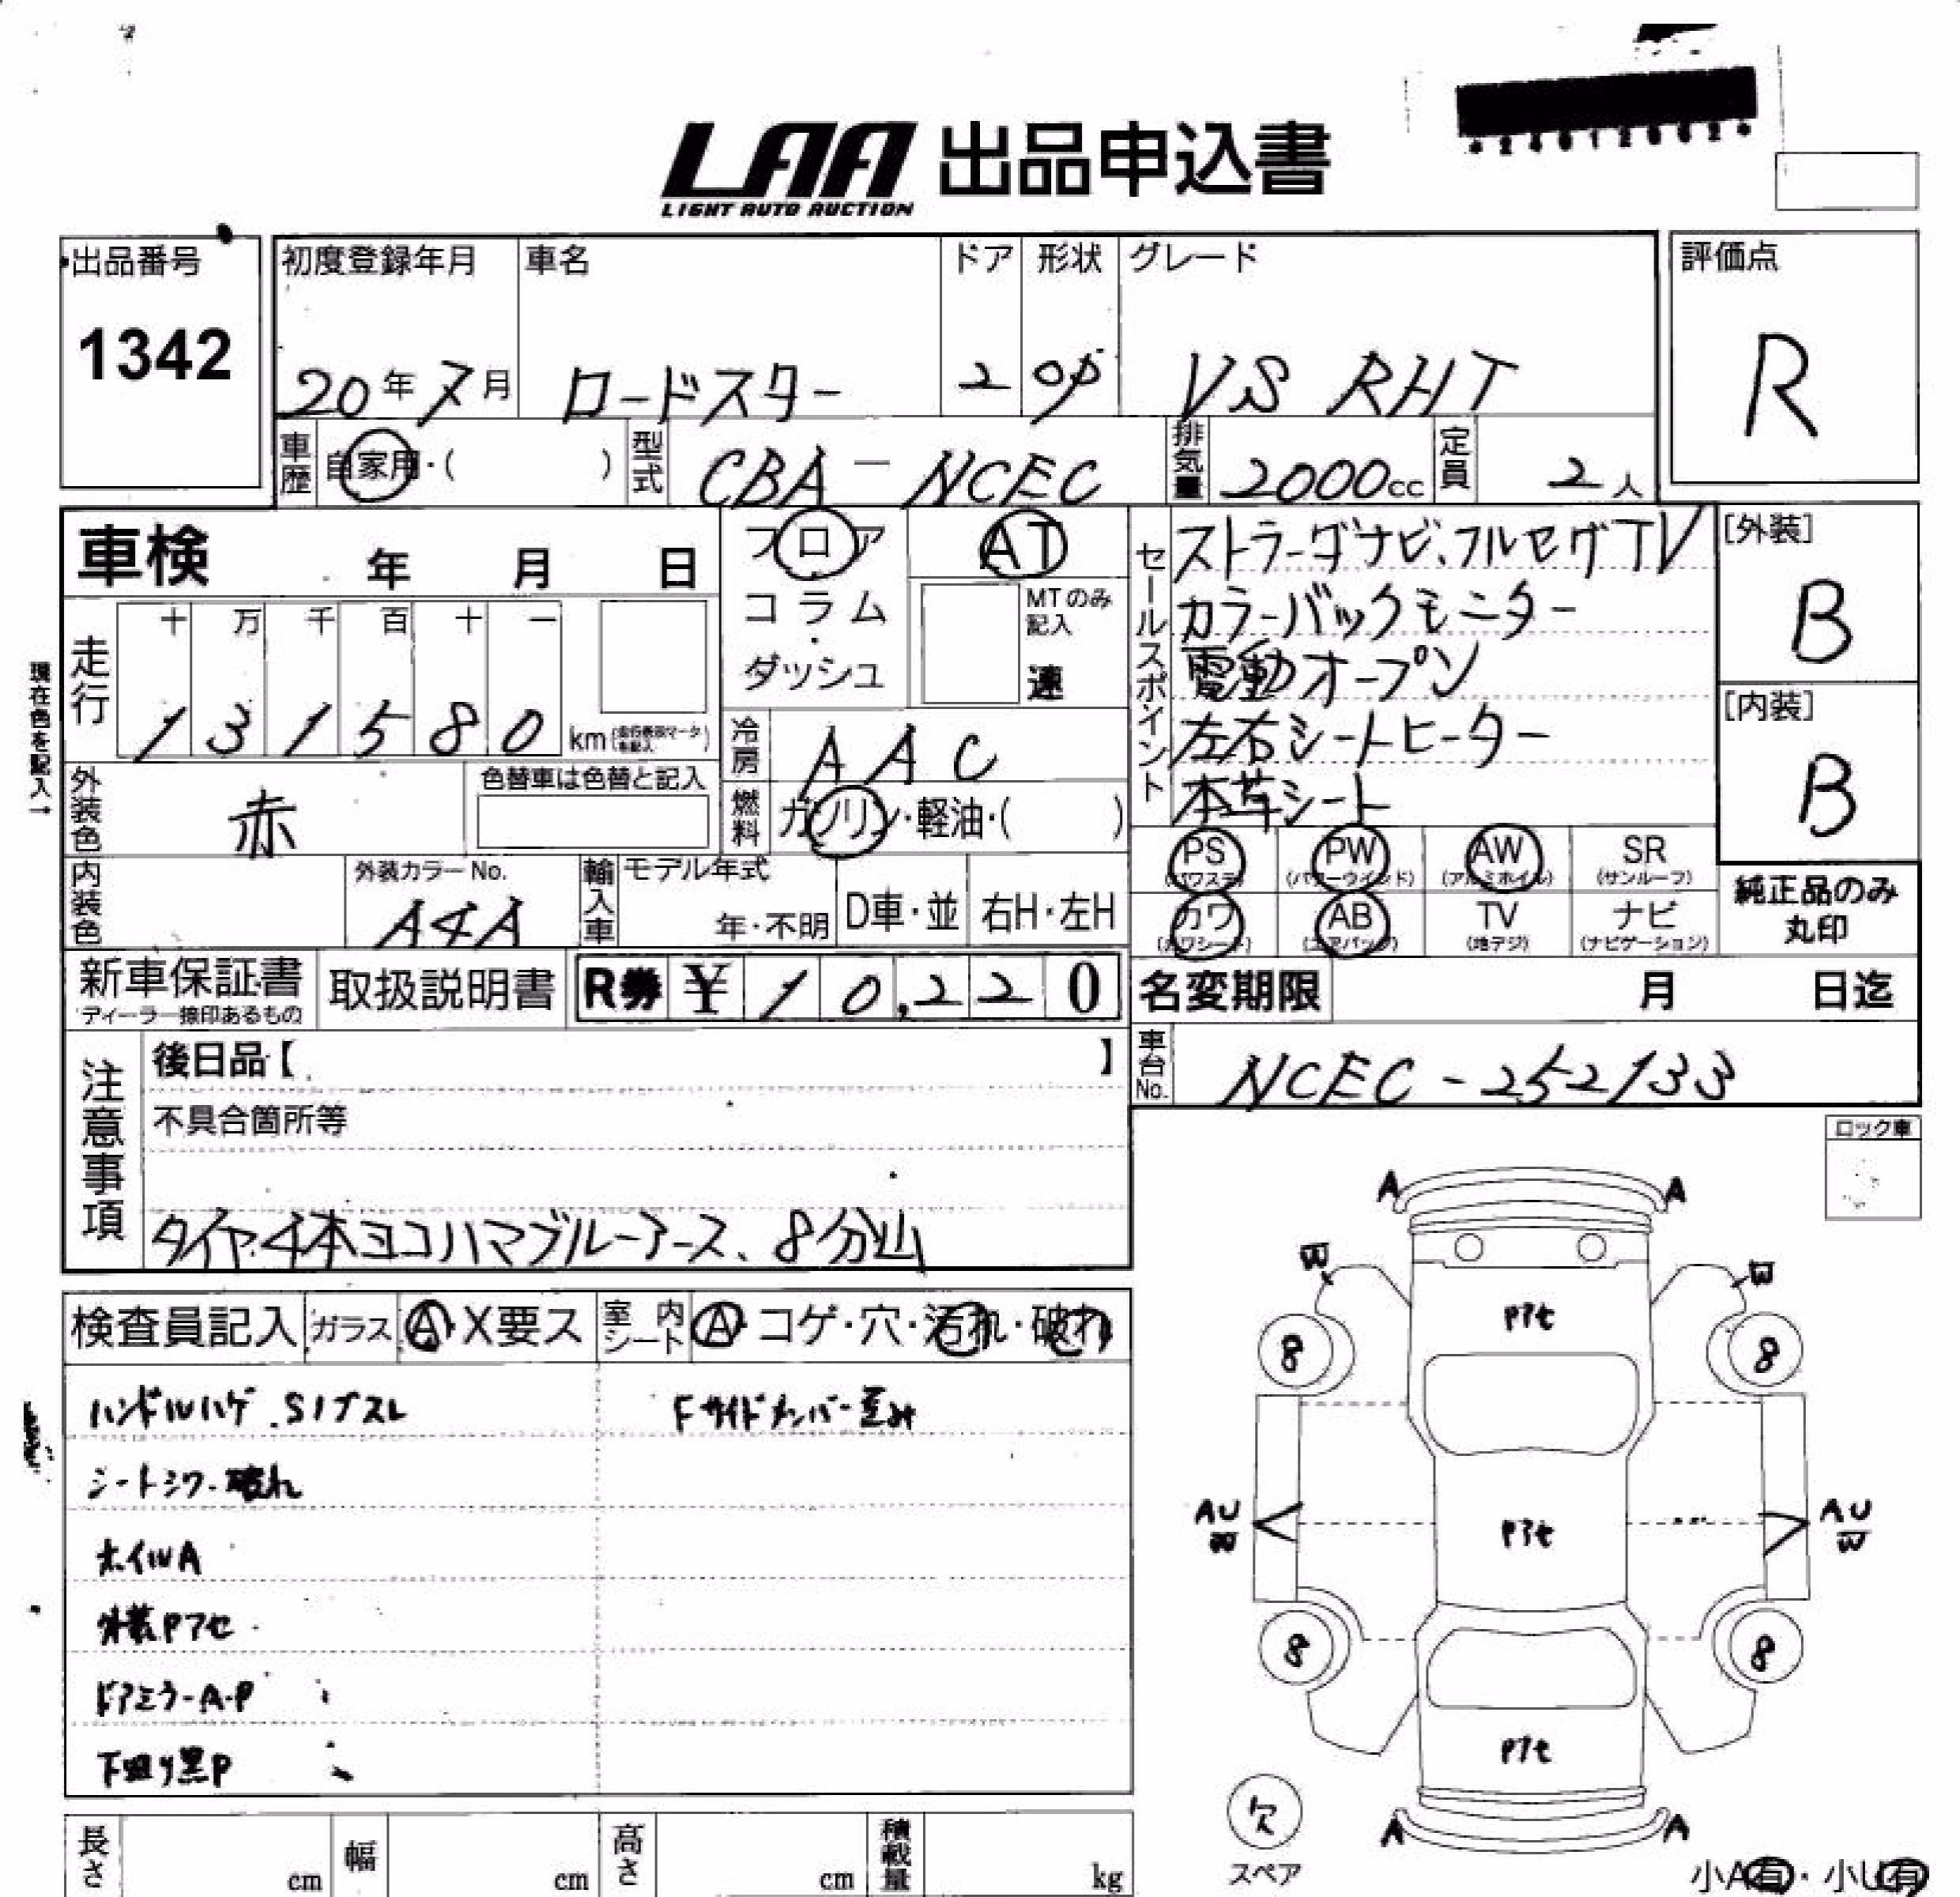 LAA 出品申込書
LIGHT AUTO AUCTION
出品番号
1342
初度登録年月
20年7月
車名
ロードスター
ドア
2
形状
OP
グレード
VS RHT
評価点
R
車歴
自家用・( )
型式
CBA-NCEC
排気量
2000cc
定員
2人
車検 年 月 日
フロア
コラム
・
ダッシュ
AT
MTのみ
記入
速
セールスポイント
ストラーダナビ、フルセグTV
カラーバックモニター
電動オープン
左右シートヒーター
本革シート
[外装]
B
[内装]
B
現在色を記入→
走行
十 万 千 百 十 一
1 3 1 5 8 0 km
冷房
AAC
外装色
赤
色替車は色替と記入
燃料
ガソリン・軽油・( )
PS
(パワステ)
PW
(パワーウインド)
AW
(アルミホイル)
SR
(サンルーフ)
カワ
(カワシート)
AB
(エアバッグ)
TV
(地デジ)
ナビ
(ナビゲーション)
純正品のみ
丸印
内装色
外装カラーNo.
A4A
輸入車
モデル年式
年・不明
D車・並
右H・左H
新車保証書
ディーラー捺印あるもの
取扱説明書
R券 ¥ 10,220
名変期限 月 日迄
注意事項
後日品【 】
不具合箇所等
タイヤ4本ヨコハマブルーアース、8分山
車台No.
NCEC-252133
ロック車
検査員記入
ガラス
A・X要ス
室内シート
A・コゲ・穴・汚れ・破れ
ハンドルハゲ.S/ブスレ
Fサイドメンバー歪み
シートシワ・破れ
ホイルA
外装Pアセ
ドアミラーA・P
下廻り黒P
A A
W W
Pアセ
8 8
AU
W
Pアセ
AU
W
8 8
Pアセ
A A
欠
スペア
小A有・小U有
長さ cm
幅 cm
高さ cm
積載量 kg